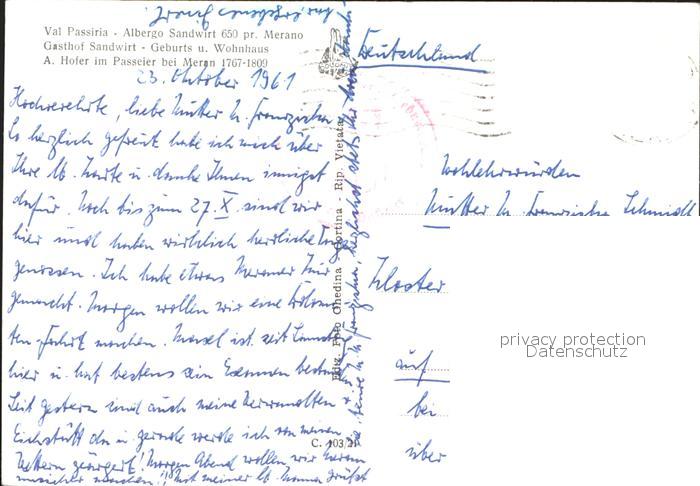 Val Passiria - Albergo Sandwirt 650 pr. Merano
Gasthof Sandwirt - Geburts u. Wohnhaus
A. Hofer im Passeier bei Meran 1767-1809
23. Oktober 1961
Hochverehrte, liebe Mutter M. Franziska
So herzlich gefreut habe ich mich über
Ihre lb. Karte u. danke Ihnen innigst
dafür. Noch bis zum 27. X. sind wir
hier und haben wirklich herrliche Tage
genossen. Ich habe etwas Meraner Kur
gemacht. Morgen wollen wir eine Dolomi
ten-Fahrt machen. ist seit
hier u. hat bestens sein Examen
Seit gestern sind auch meine Verwandten v.
Eichstätt da u. gerade werde ich von meinen
Vettern geärgert! Morgen Abend wollen wir Meran
unsicher machen!! Mit meiner lb. Mama grüßt
Ediz. Foto Ghedina - Cortina - Rip. Vietata
C. 103/21
Deutschland
Wohlehrwürden
Mutter M. Franziska Schmidt
Kloster
auf
bei
über
privacy protection
Datenschutz